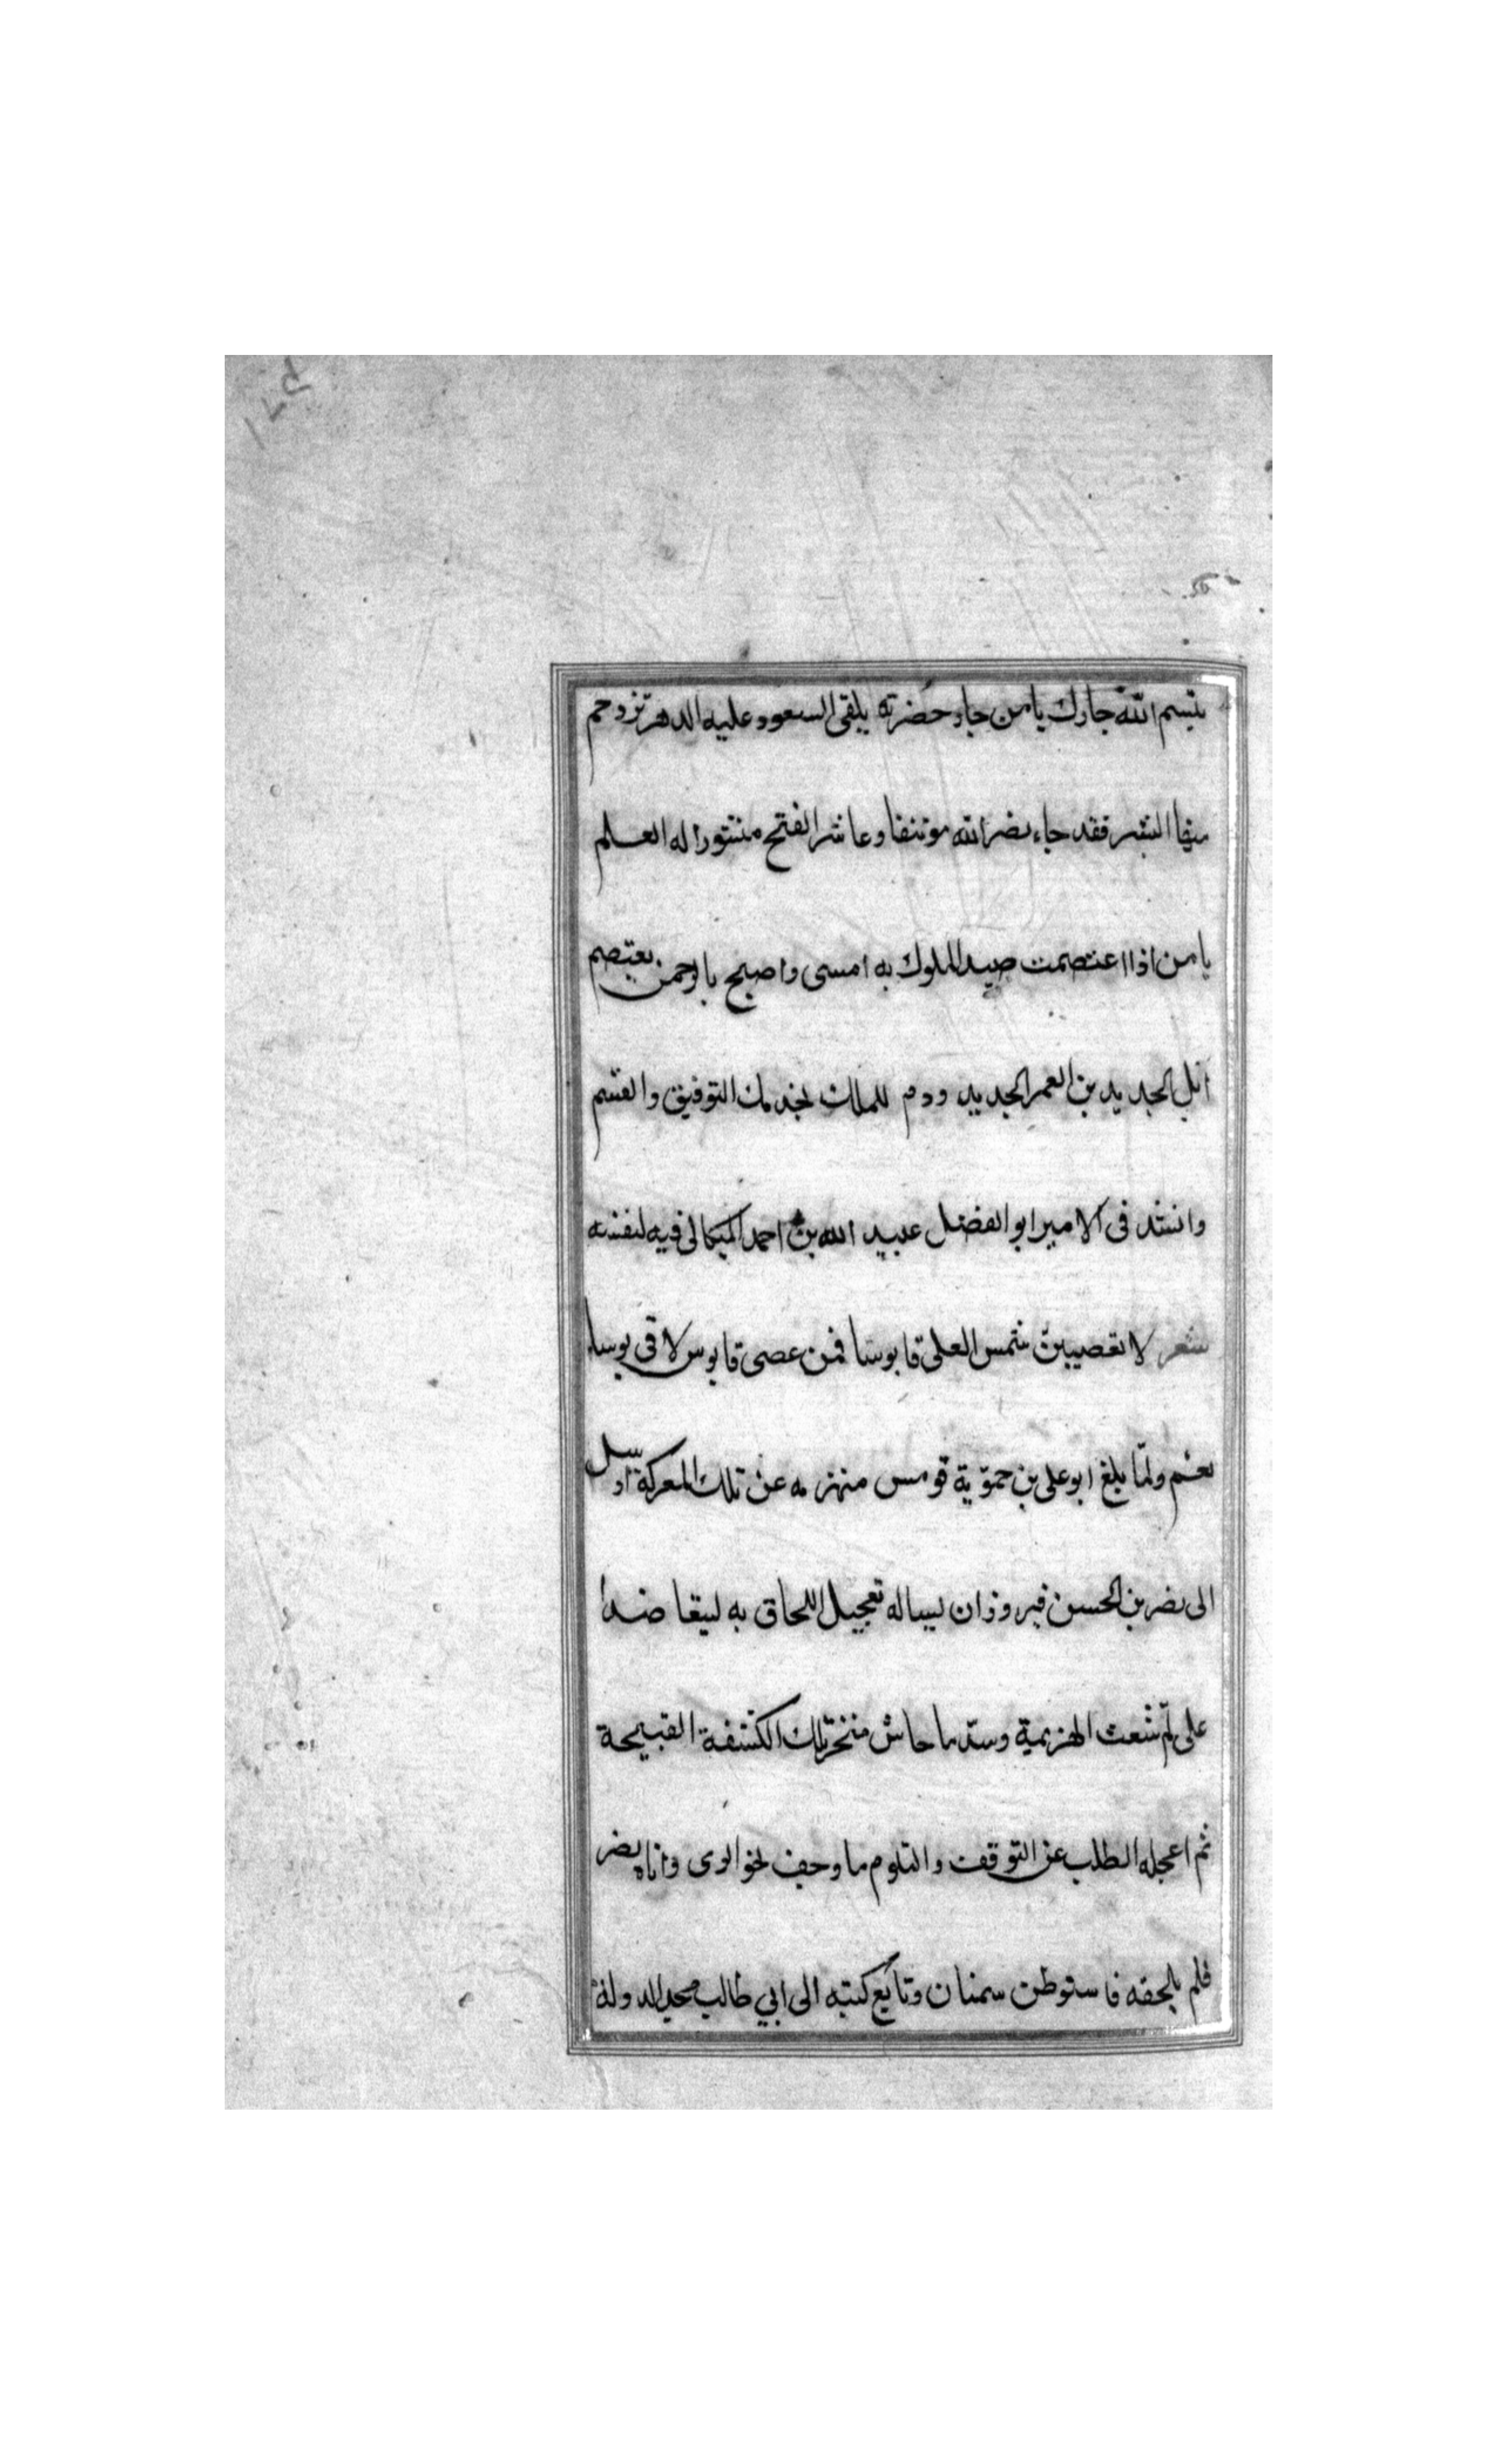 ١٧٢
بتسم الله جارك يا من جاد حضرته يلقى السعود عليه الدهر تزدحم
منها البشر فقد جاء نصر الله مؤتنفا وعاشر الفتح منشورا له العلم
يا من اذا اعتصمت صيد الملوك به امسى واصبح بالرحمن يعتصم
ابل الجديد بن العمر الجديد ودم للملك يخدمك التوفيق والقسم
وانشد فى الامير ابو الفضل عبيد الله بن احمد الميكالى فيه لنفسه
شعر لا تعصين شمس العلى قابوسا فمن عصى قابوس لاقى بوسا
نعم ولمّا بلغ ابو على بن حموّية قومس منهزمه عن تلك المعركة ارسل
الى نصر بن الحسن فيروزان يساله تعجيل اللحاق به ليتعاضدا
على لمّ شعث الهزيمية وسدّ ما جاش من تلك الكشفة القبيحة
ثم اعجله الطلب عن التوقف والتلوم ما وجف نحو الرى واتاه نصر
فلم يلحقه فاستوطن سمنان وتابع كتبه الى ابي طالب مجد الدولة